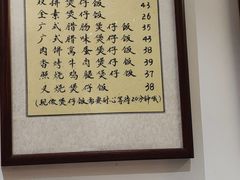 双拼煲仔饭 43
全素煲仔饭 26
广式腊肠煲仔饭 35
广式腊味煲仔饭 43
肉饼窝蛋煲仔饭 38
香烤牛肉煲仔饭 39
照烧鸡腿煲仔饭 37
叉烧煲仔饭 38
(现做煲仔饭需要耐心等待20分钟哦)